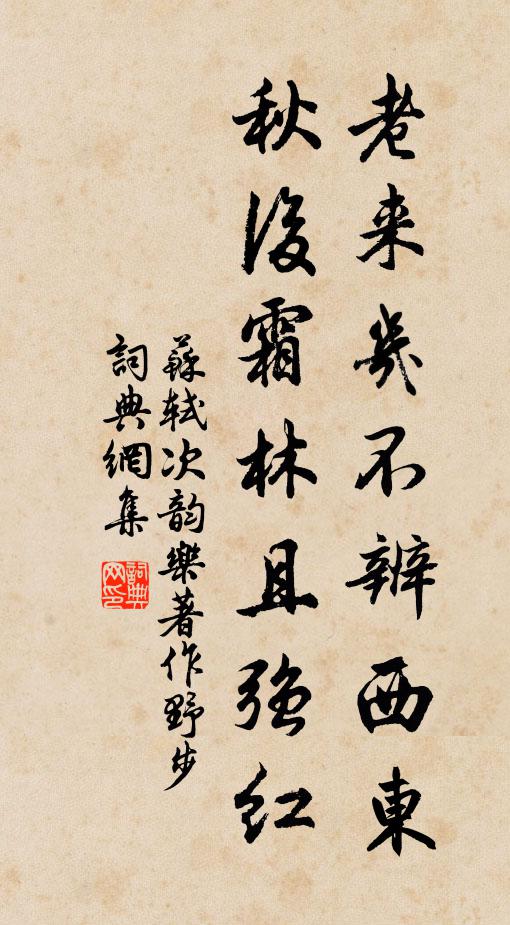 老来幾不辨西東
秋後霜林且強紅
蘇軾次韵樂著作野步
詞典網集
詞典
网印